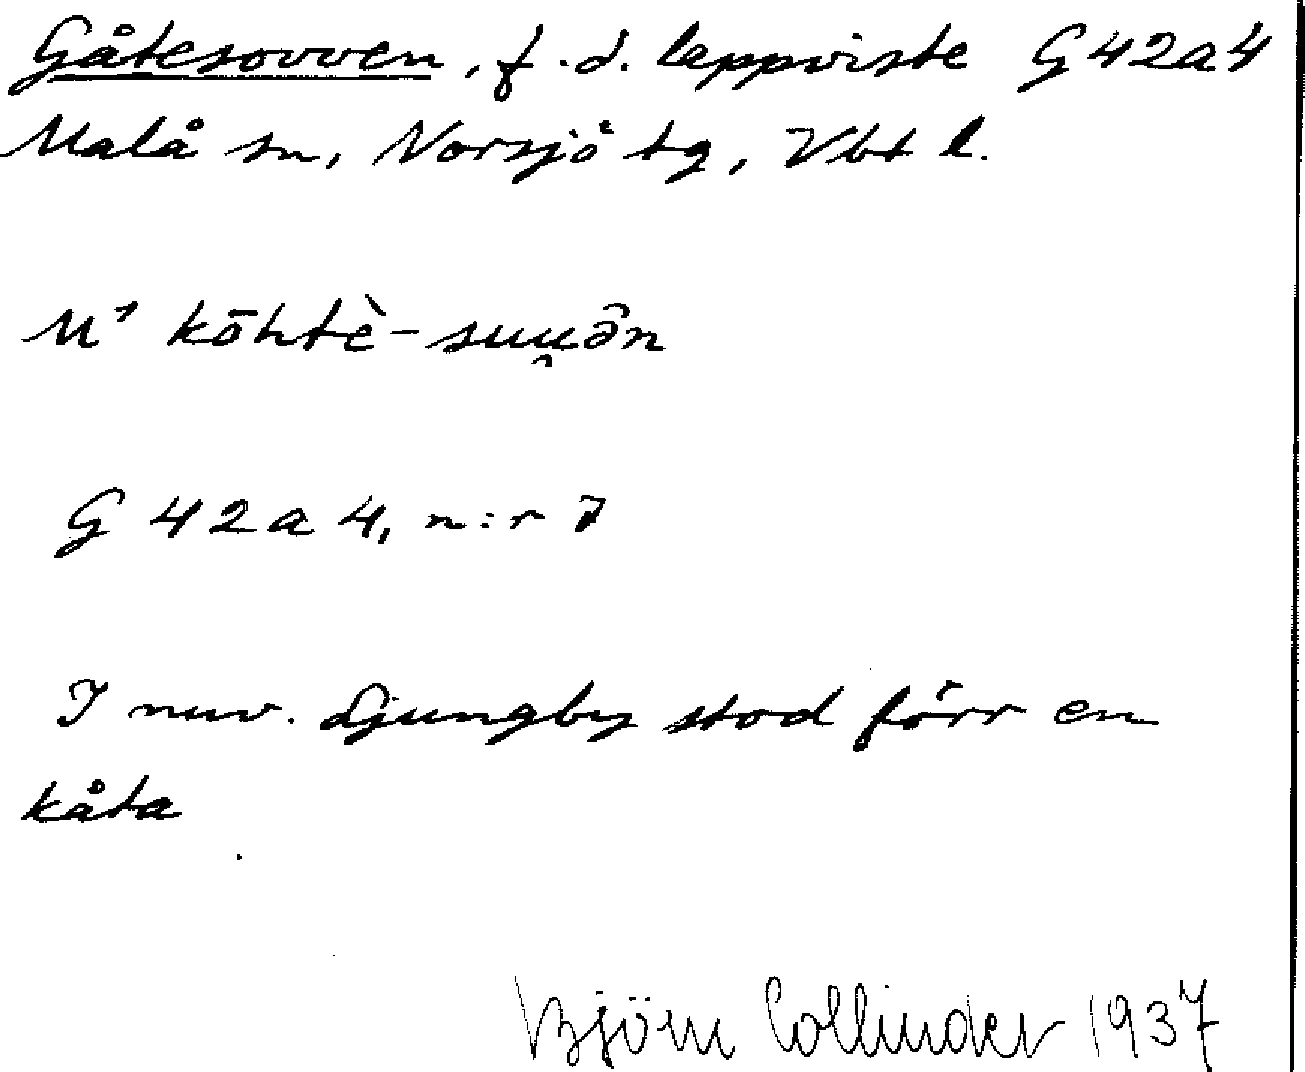 Gåtesovven, f.d. lappviste G42a4
Malå sn, Norsjö tg, Vbt l.
M' kōhtè-suu̯ə̑n
G 42a 4, n:r 7
I nuv. Ljungby stod förr en
kåta
Björn Collinder 1937